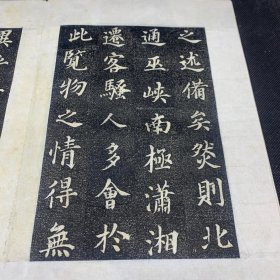 之述備矣然則北
通巫峽南極瀟湘
遷客騷人多會於
此覽物之情得無